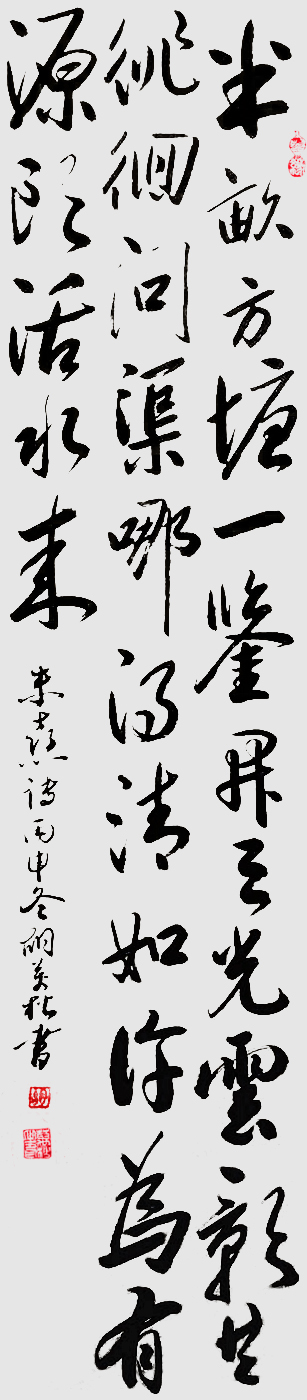 半畝方塘一鑒開天光雲影共
徘徊問渠哪得清如許為有
源頭活水来
朱熹詩丙申冬書